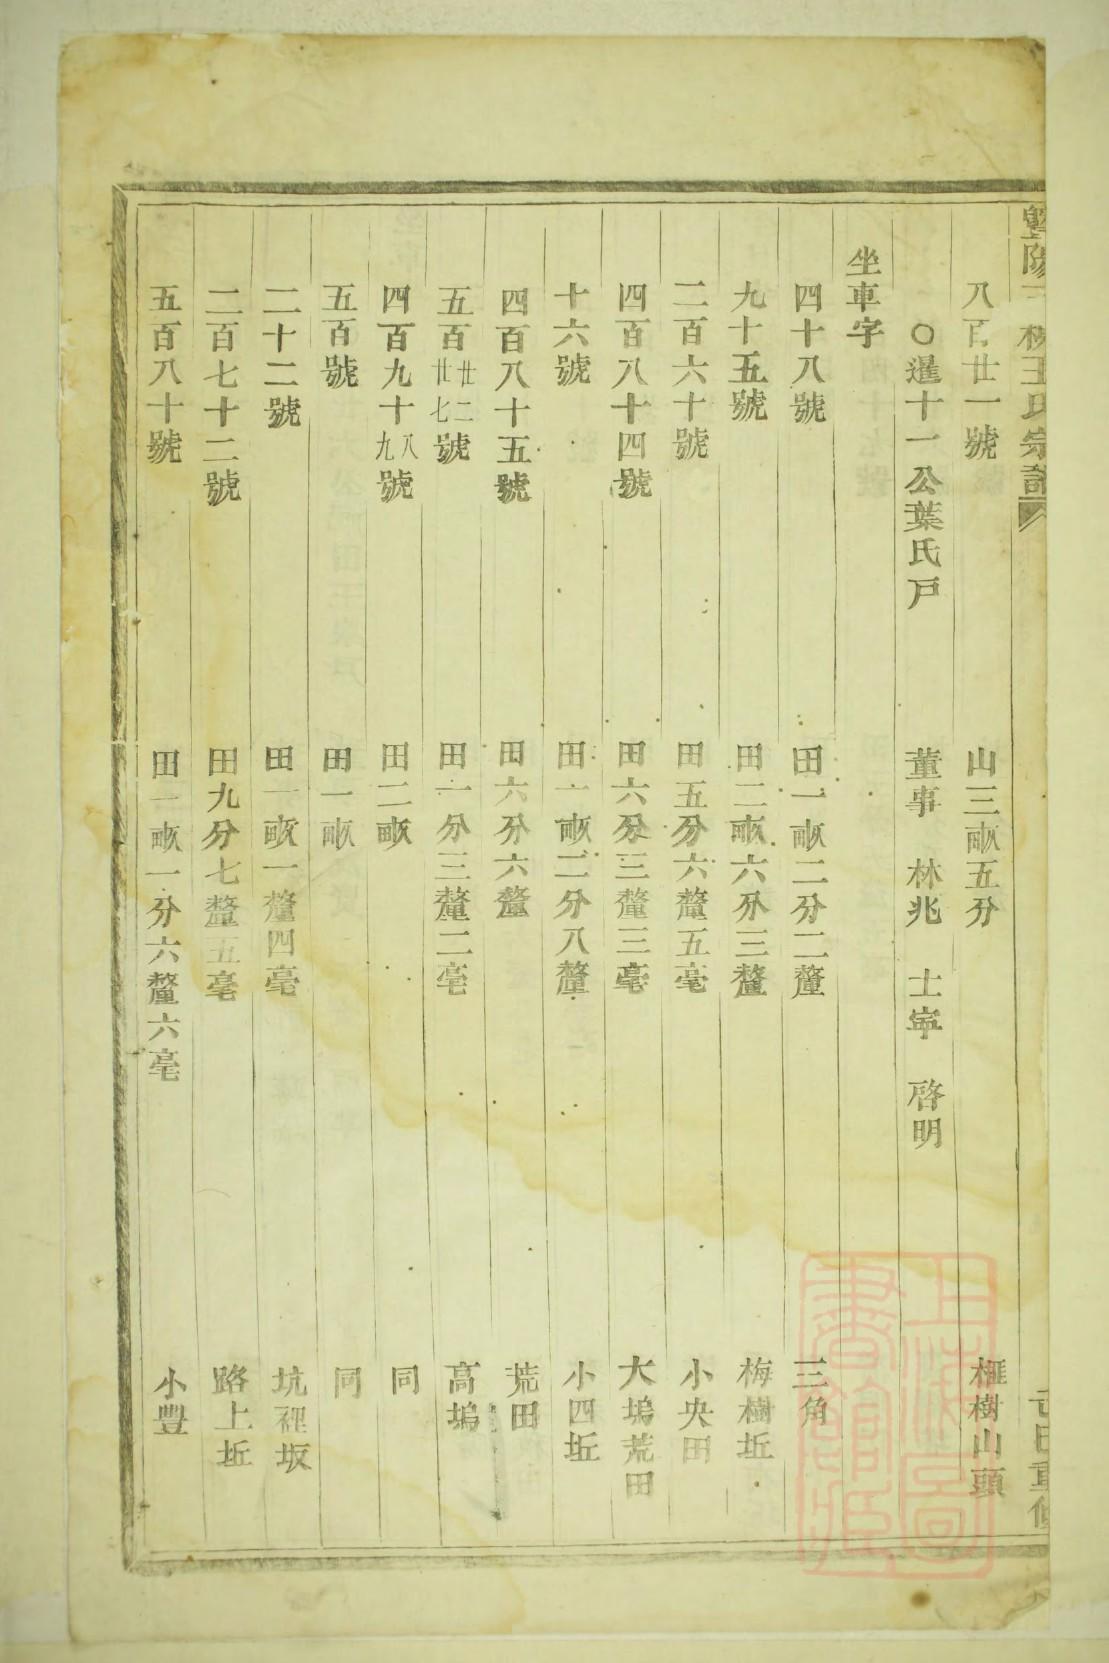 八百廿一號 山三畝五分 榧樹山頭
○暹十一公葉氏戸 董事 林兆 士寧 啓明
坐車字
四十八號 田一畝二分二釐 三角
九十五號 田二畝六分三釐 梅樹坵
二百六十號 田五分六釐五毫 小央田
四百八十四號 田六分三釐三毫 大塢荒田
十六號 田一畝二分八釐 小四坵
四百八十五號 田六分六釐 荒田
五百廿二廿七號 田一分三釐二毫 高塢
四百九十八九號 田二畝 同
五百號 田一畝 同
二十二號 田一畝一釐四毫 坑裡坂
二百七十二號 田九分七釐五毫 路上坵
五百八十號 田一畝一分六釐六毫 小豐
上海圖書館藏